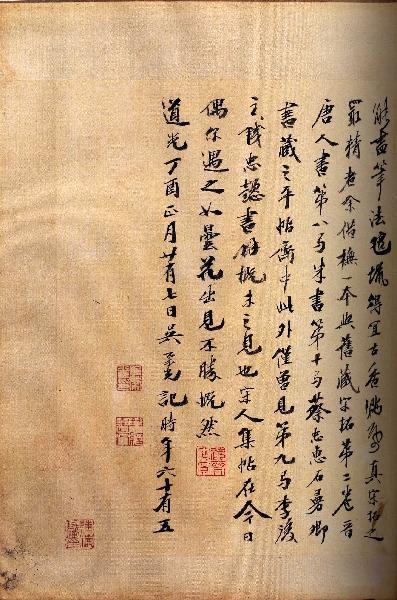 能書筆法 得宜古香 真宋拓之
最精者余借橅一本與舊藏宋拓第二卷晉
唐人書第八与米書第十与蔡忠惠石曼卿
書藏之平帖齋中此外僅曾見第九与李後
主錢忠懿書 未之見也宋人集帖在今日
偶尔遇之如曇花出見不勝慨然
道光丁酉正月廿有七日吴榮光記時年六十有五